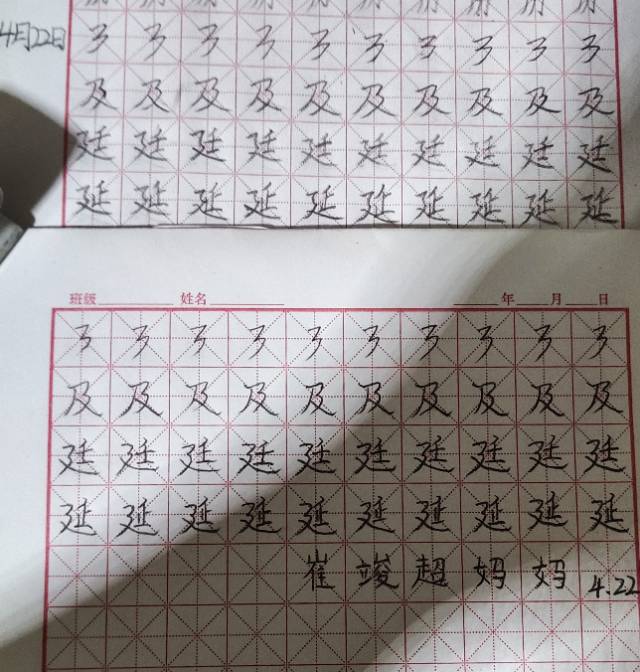 4月22日
及 及 及 及 及 及 及 及 及 及
廷 廷 廷 廷 廷 廷 廷 廷 廷 廷
延 延 延 延 延 延 延 延 延 延
班级 姓名 年 月 日
及 及 及 及 及 及 及 及 及 及
廷 廷 廷 廷 廷 廷 廷 廷 廷 廷
延 延 延 延 延 延 延 延 延 延
崔 竣 超 妈 妈 4.22